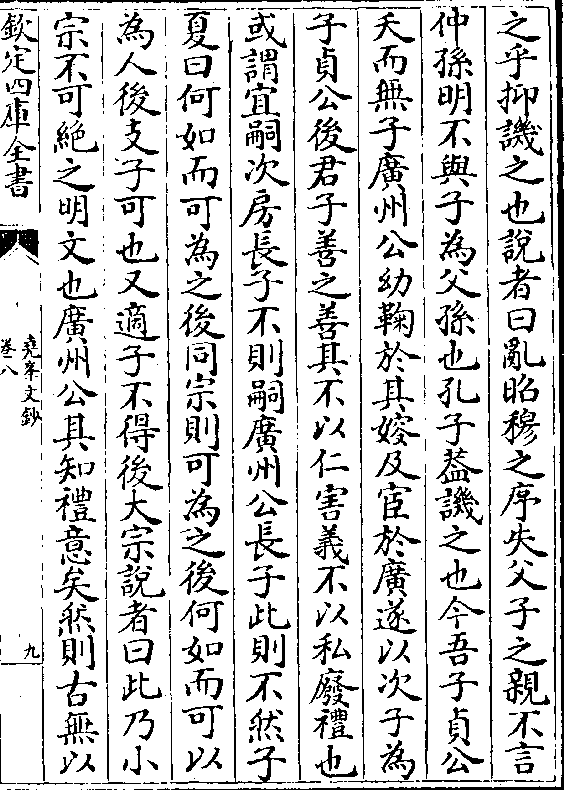 之乎抑譏之也說者曰亂昭穆之序失父子之親不言
仲孫明不與子為父孫也孔子葢譏之也今吾子貞公
夭而無子廣州公幼鞠於其嫂及宦於廣遂以次子為
子貞公後君子善之善其不以仁害義不以私廢禮也
或謂宜嗣次房長子不則嗣廣州公長子此則不然子
夏曰何如而可為之後同宗則可為之後何如而可以
為人後支子可也又適子不得後大宗說者曰此乃小
宗不可絶之明文也廣州公其知禮意矣然則古無以
欽定四庫全書
堯峯文鈔
卷八
九